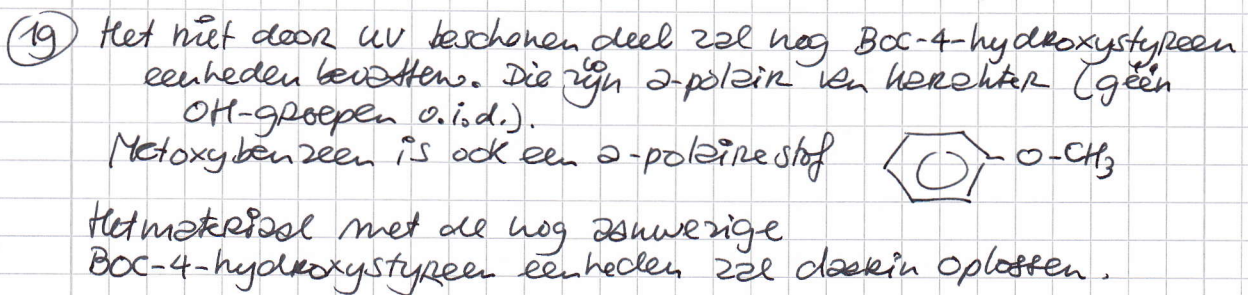 19 Het niet door UV beschenen deel zal nog Boc-4-hydroxystyreen
eenheden bevatten. Die zijn a-polair van karakter (géén
OH-groepen o.i.d.).
Metoxybenzeen is ook een a-polaire stof -O-CH3
Het materiaal met de nog aanwezige
Boc-4-hydroxystyreen eenheden zal daarin oplossen.